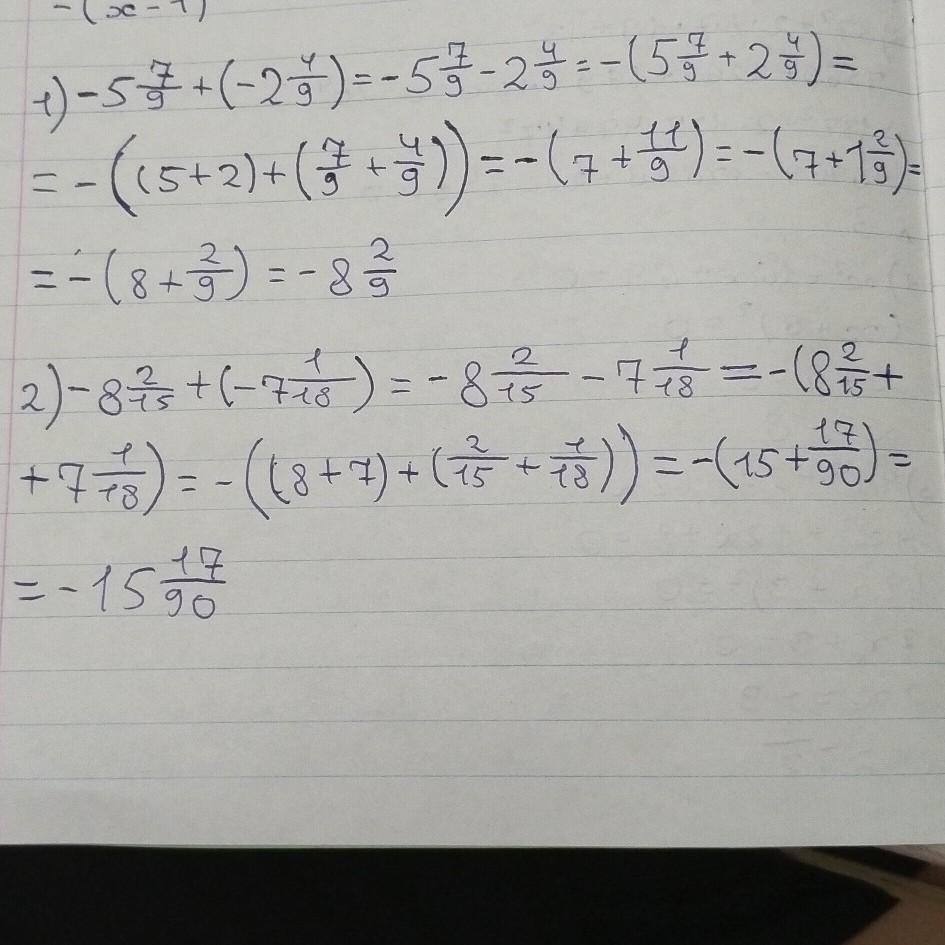 -(x-1)
1) -5 7/9 + (-2 4/9) = -5 7/9 - 2 4/9 = -(5 7/9 + 2 4/9) =
= -((5+2) + (7/9 + 4/9)) = -(7 + 11/9) = -(7 + 1 2/9) =
= -(8 + 2/9) = -8 2/9
2) -8 2/15 + (-7 1/18) = -8 2/15 - 7 1/18 = -(8 2/15 +
+ 7 1/18) = -((8+7) + (2/15 + 1/18)) = -(15 + 17/90) =
= -15 17/90